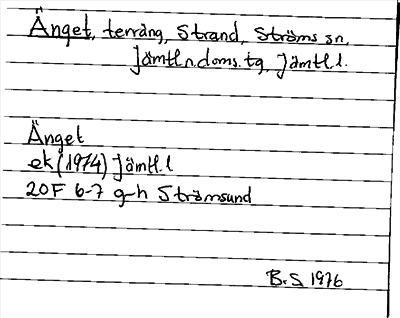 Änget, terräng, Strand, Ströms sn,
Jämtl.n.doms.tg, Jämtl.l.
Änget
ek (1974) Jämtl.l
20F 6-7 g-h Strömsund
B.S. 1976